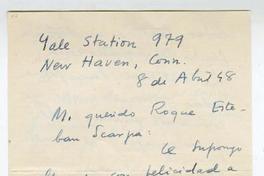 Yale Station 979
New Haven, Conn.
8 de Abril 48
M. querido Roque Este-
ban Scarpa:
Le supongo
con felicidad a